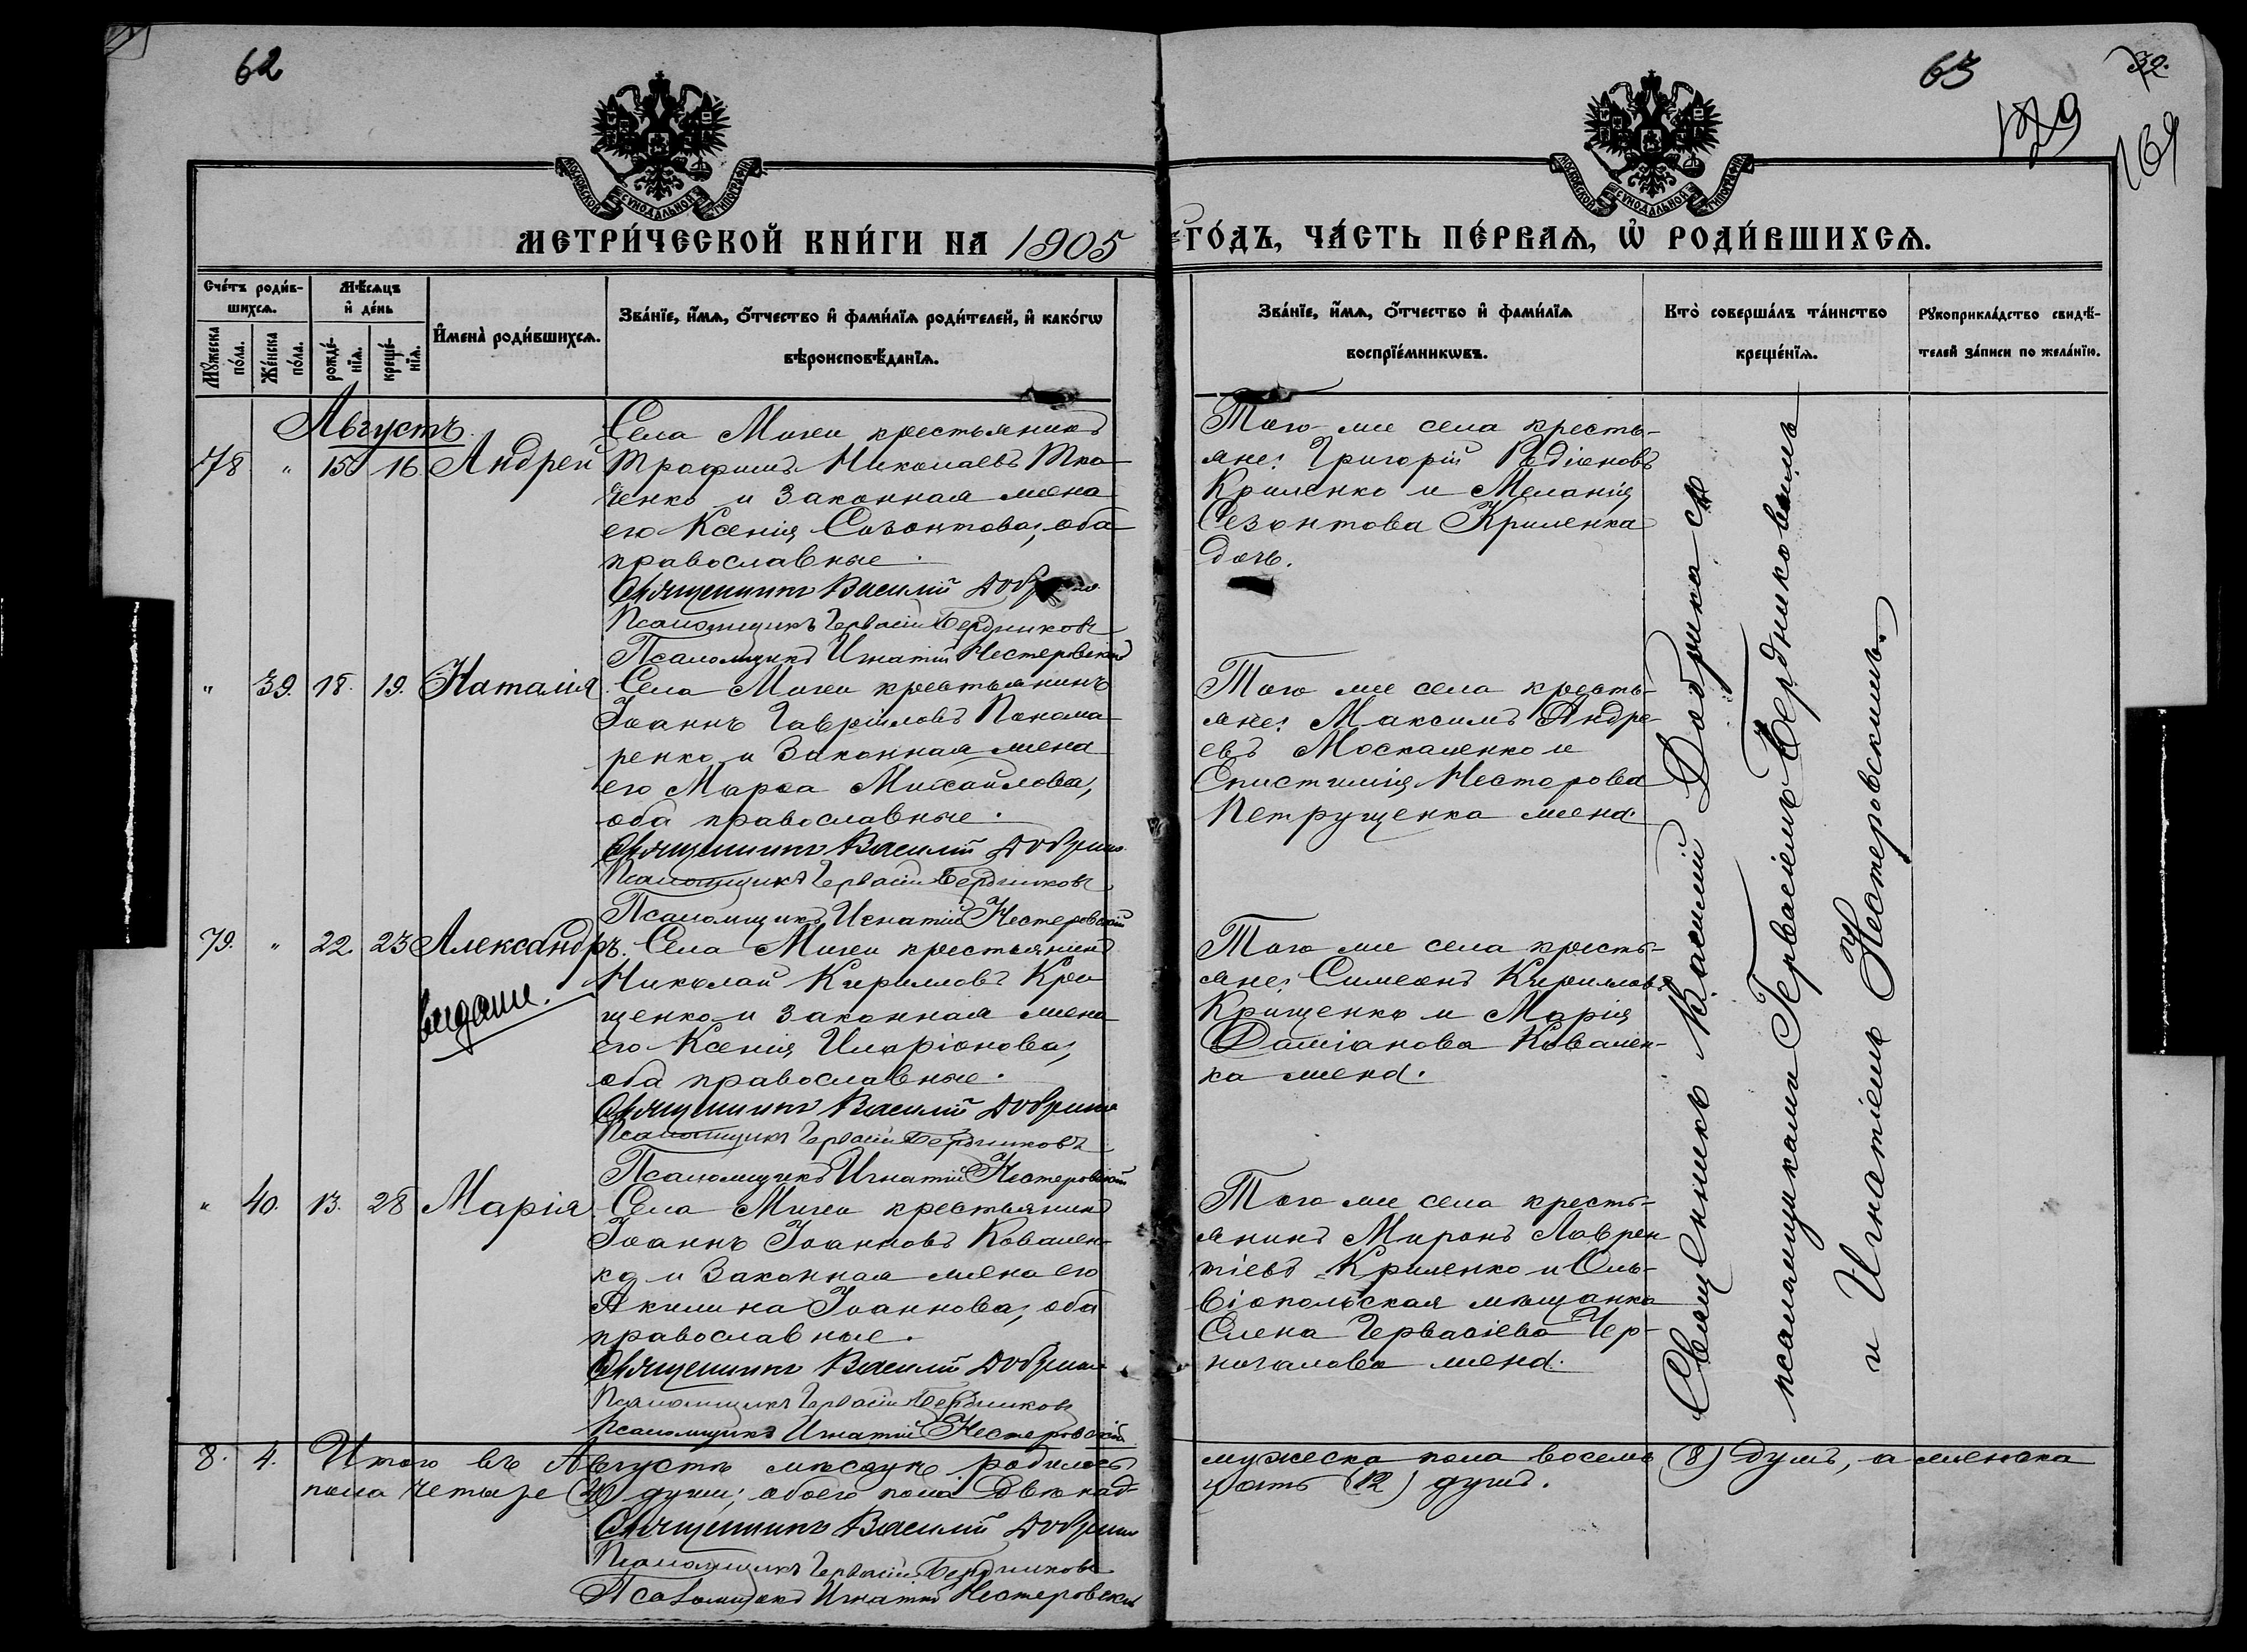 62
63
32.
129
169
МОСКОВСКОЙ СѴНОДАЛЬНОЙ ТИПОГРАФІИ
МОСКОВСКОЙ СѴНОДАЛЬНОЙ ТИПОГРАФІИ
МЕТРИ́ЧЕСКОЙ КНИ́ГИ НА 1905 ГО́ДЪ, ЧА́СТЬ ПЕ́РВАѦ, Ѡ҆ РОДИ́ВШИХСѦ.
Сче́тъ роди́в-
шихсѧ.
Мꙋжеска по́ла.
Же́нска по́ла.
Мѣ́сѧцъ
и҆ де́нь
рожде́-
нїѧ.
креще́-
нїѧ.
И҆мена̀ роди́вшихсѧ.
Зва́нїе, и҆́мѧ, ѻ҆́тчество и҆ фами́лїѧ роди́телей, и҆ како́гѡ
вѣроисповѣ́данїѧ.
Зва́нїе, и҆́мѧ, ѻ҆́тчество и҆ фами́лїѧ
воспрїе́мникѡвъ.
Кто̀ соверша́лъ та́инство
креще́нїѧ.
Рꙋкоприкла́дство свидѣ́-
телей за́писи по жела́нїю.
Августъ
78 " 15 16 Андрей
Села Мигеи крестьянинъ
Трофимъ Николаевъ Тка-
ченко и законная жена
его Ксенія Созонтова, оба
православные.
Священникъ Василій
Псаломщикъ Гервасій Бердниковъ
Псаломщикъ Игнатій Нестеровскій
Того же села кресть-
яне: Григорій Родіоновъ
Криленко и Меланія
Сезонтова Криленка
дочь.
" 39. 18. 19. Наталія.
Села Мигеи крестьянинъ
Іоаннъ Гавріиловъ Понома-
ренко и законная жена
его Марѳа Михайлова,
оба православные.
Священникъ Василій Добришъ
Псаломщикъ Гервасій Бердниковъ
Псаломщикъ Игнатій Нестеровскій
Того же села кресть-
яне: Максимъ Андре-
евъ Москаленко и
Епистимія Нестерова
Петрущенка жена.
79. " 22 23 Александръ.
Села Мигеи крестьянинъ
Николай Кирилловъ Кри-
щенко и законная жена
его Ксенія Иларіонова,
оба православные.
Священникъ Василій
Псаломщикъ Гервасій Бердниковъ
Псаломщикъ Игнатій Нестеровскій
Того же села кресть-
яне: Симеонъ Кирилловъ
Крищенко и Марія
Даміанова Ковален-
ка жена.
" 40. 13. 28 Марія.
Села Мигеи крестьянинъ
Іоаннъ Іоанновъ Ковален-
ко и законная жена его
Акилина Іоаннова, оба
православные.
Священникъ Василій
Псаломщикъ Гервасій Бердниковъ
Псаломщикъ Игнатій Нестеровскій
Того же села кресть-
янинъ Миронъ Лаврен-
тіевъ Криленко и Оль-
віопольская мѣщанка
Елена Гервасіева Чер-
ногалова жена.
Священникъ Василій Добришъ съ
псаломщиками Гервасіемъ Бердниковымъ
и Игнатіемъ Нестеровскимъ.
8. 4. Итого въ Августѣ мѣсяцѣ родилось мужеска пола восемь (8) душъ, а женска
пола четыре (4) души; обоего пола двѣнад-
цать (12) душъ.
Священникъ Василій
Псаломщикъ Гервасій Бердниковъ
Псаломщикъ Игнатій Нестеровскій